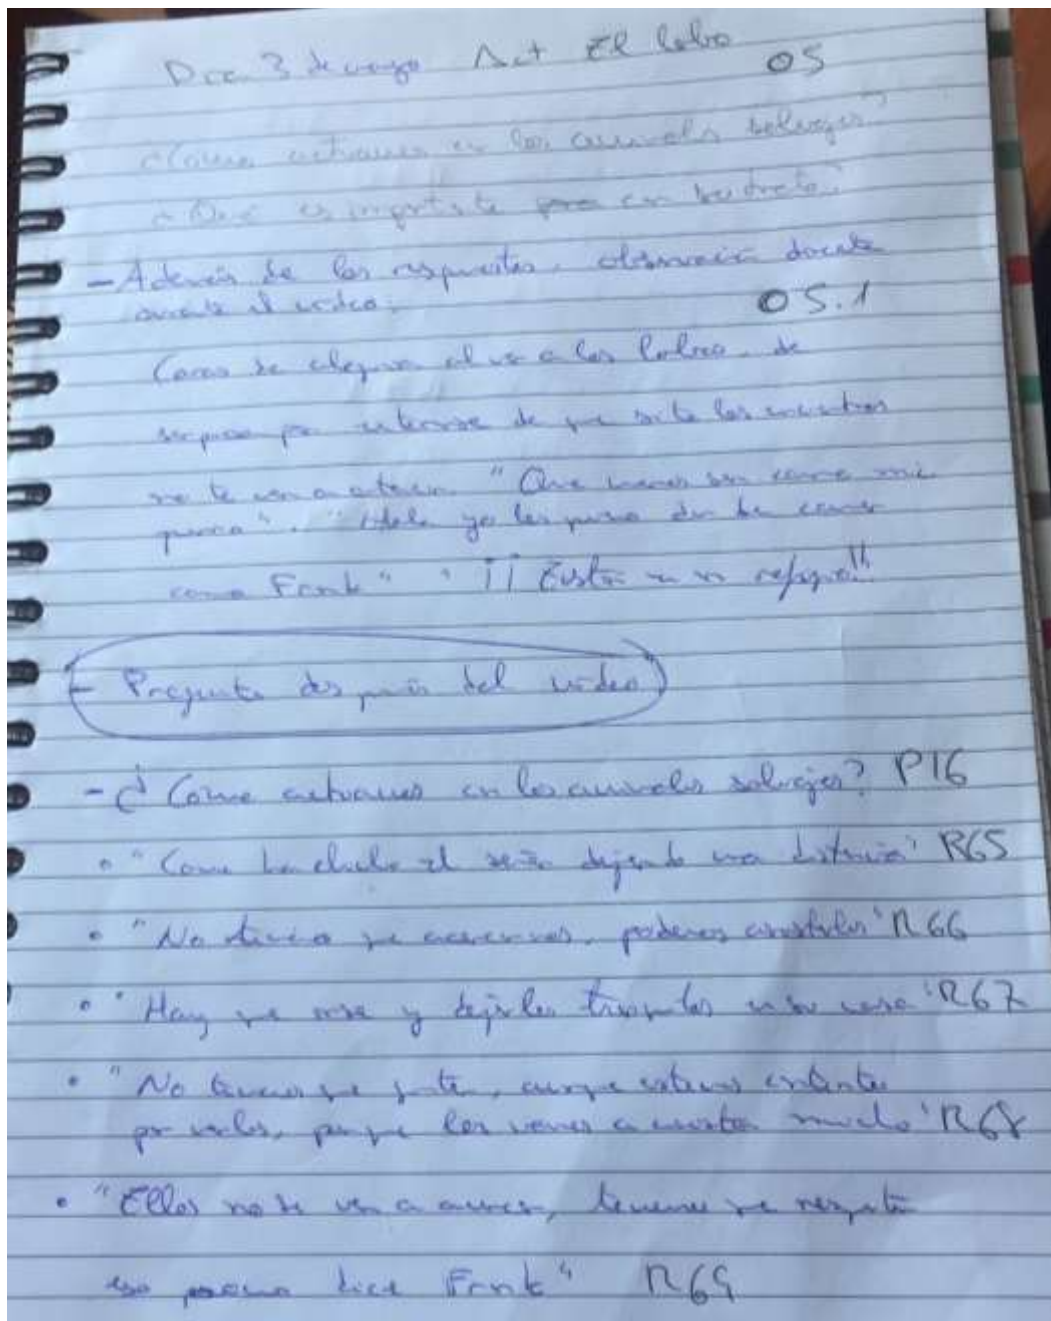 Doc 3 de mayo Act El lobo
O5
¿Como actuamos con los animales salvajes?
¿Qué es importante para
- Además de las respuestas, observación docente
durante el video.
O5.1
Caras de alegria al ver a los lobos, de
sorpresa por enterarse de que si te los encuentras
no te van a atacar. "Que buenos son como mi
perro". "Hala yo les puedo dar de comer
como Frank" "¡¡Están en un refugio!!
- Pregunta después del video
- ¿Como actuamos con los animales salvajes? P16
• "Como ha dicho el señor dejando una distancia" R65
• "No tenemos que acercarnos, podemos asustarlos" R66
• "Hay que irse y dejarles tranquilos en su casa" R67
• "No tenemos que gritar, aunque estemos contentos
por verlos, porque les vamos a asustar mucho" R68
• "Ellos no se van a acercar, tenemos que respetar
eso como dice Frank" R69